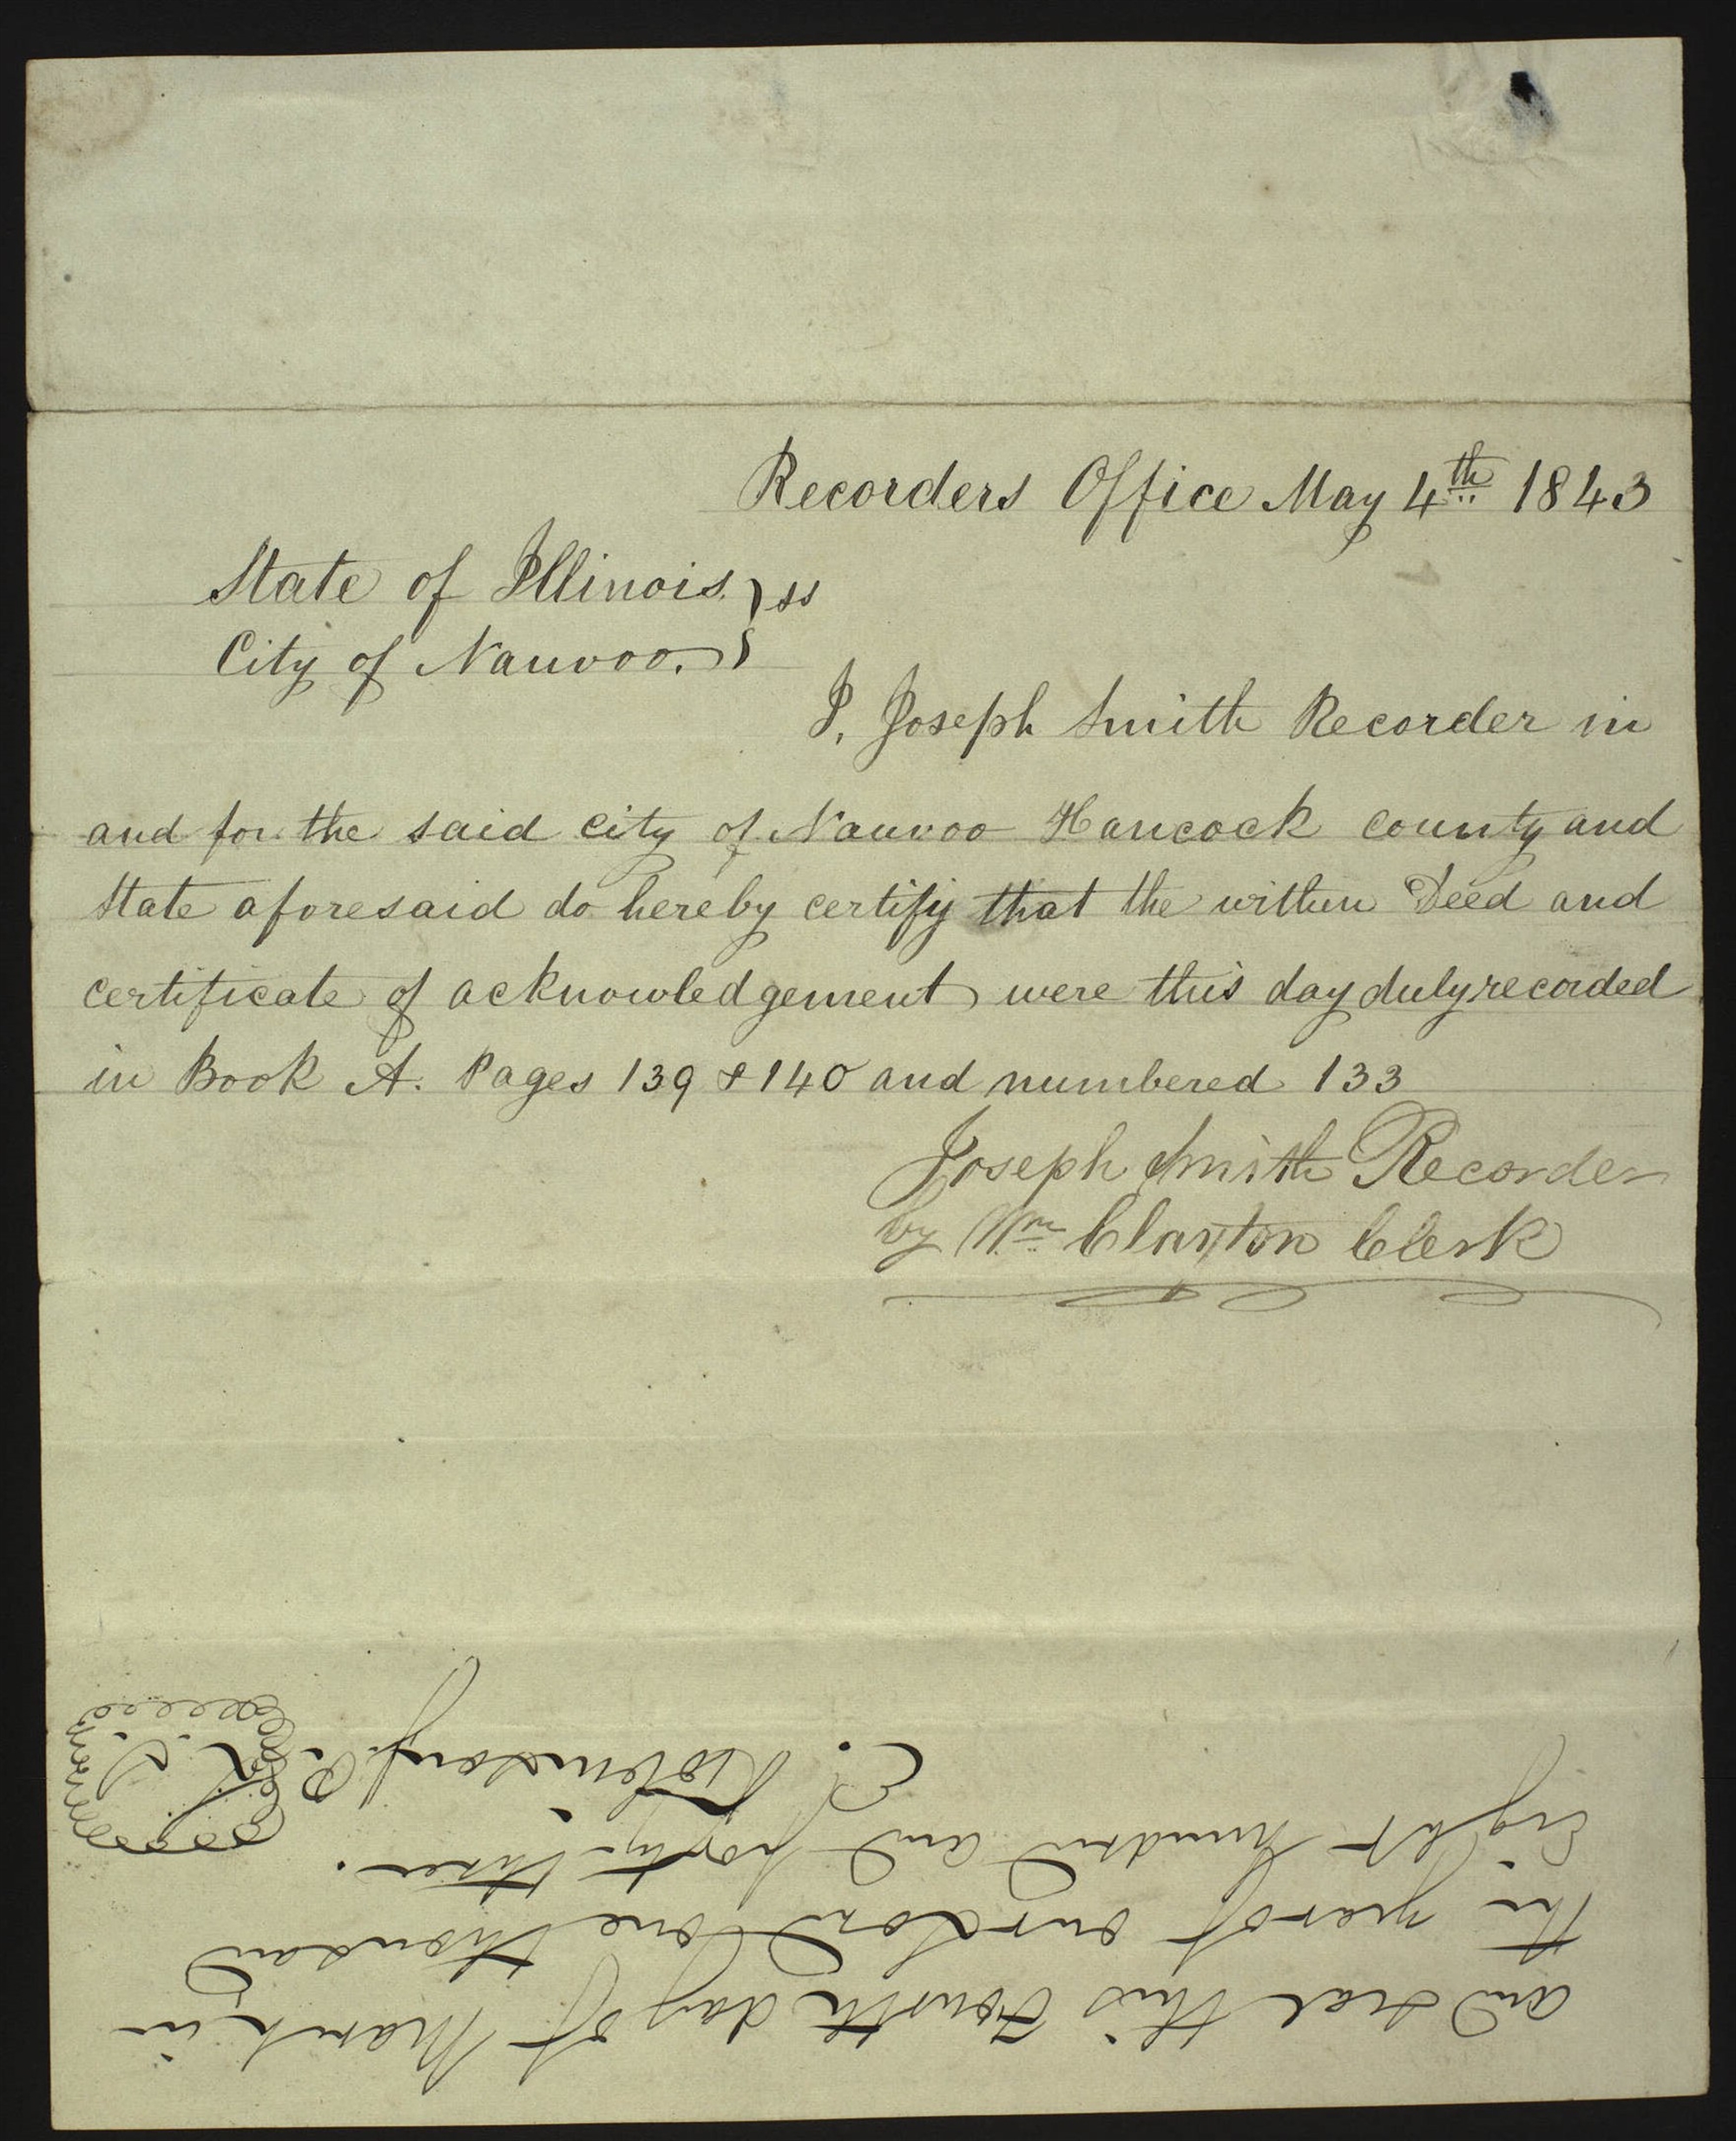 Recorders Office May 4th 1843
State of Illinois. } ss
City of Nauvoo. }
I, Joseph Smith Recorder in
and for the said city of Nauvoo Hancock county and
State aforesaid do hereby certify that the within Deed and
certificate of acknowledgement were this day duly recorded
in Book A. Pages 139 & 140 and numbered 133
Joseph Smith Recorder
by Wm Clayton Clerk
and seal this Fourth day of March in
the year of our Lord one thousand
Eight hundred and forty-three.
E. Robinson J. P. L. S.